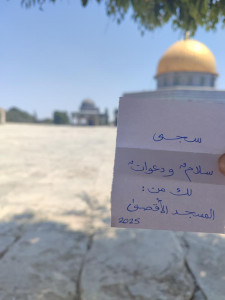 سجى
سلامٌ ودعواتٌ
لك من:
المسجد الأقصى
2025